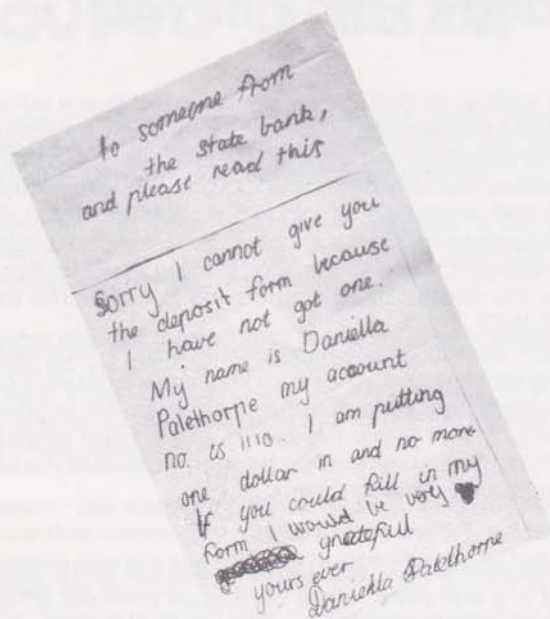 to someone from
the state bank,
and please read this
Sorry I cannot give you
the deposit form because
I have not got one.
My name is Daniella
Palethorpe my account
no. is 1110. I am putting
one dollar in and no more
If you could fill in my
form I would be very
greatefull
yours ever
Daniella Palethorne